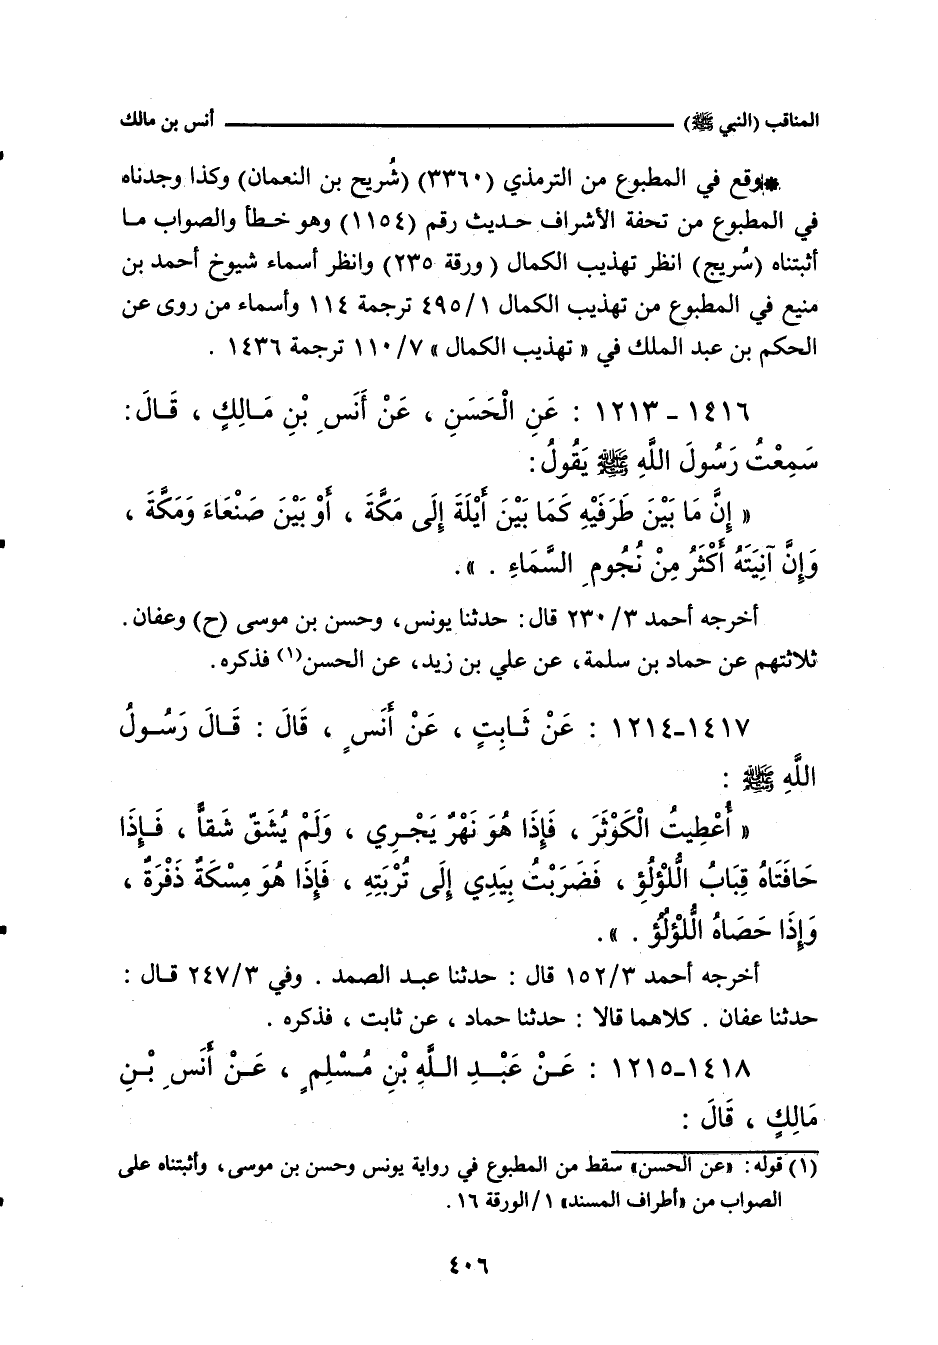 المناقب (النبي ﷺ) ــــــــــ أنس بن مالك
* وقع في المطبوع من الترمذي (٣٣٦٠) (شُريح بن النعمان) وكذا وجدناه
في المطبوع من تحفة الأشراف حديث رقم (١١٥٤) وهو خطأ والصواب ما
أثبتناه (سُريج) انظر تهذيب الكمال ( ورقة ٢٣٥) وانظر أسماء شيوخ أحمد بن
منيع في المطبوع من تهذيب الكمال ٤٩٥/١ ترجمة ١١٤ وأسماء من روى عن
الحكم بن عبد الملك في « تهذيب الكمال » ١١٠/٧ ترجمة ١٤٣٦ .
١٤١٦ - ١٢١٣ : عَنِ الْحَسَنِ ، عَنْ أَنَسِ بْنِ مَالِكٍ ، قَالَ:
سَمِعْتُ رَسُولَ اللَّهِ ﷺ يَقُولُ:
« إِنَّ مَا بَيْنَ طَرَفَيْهِ كَمَا بَيْنَ أَيْلَةَ إِلَى مَكَّةَ ، أَوْ بَيْنَ صَنْعَاءَ وَمَكَّةَ ،
وَإِنَّ آنِيَتَهُ أَكْثَرُ مِنْ نُجُومِ السَّمَاءِ . ».
أخرجه أحمد ٢٣٠/٣ قال: حدثنا يونس، وحسن بن موسى (ح) وعفان.
ثلاثتهم عن حماد بن سلمة، عن علي بن زيد، عن الحسن(١) فذكره.
١٤١٧-١٢١٤ : عَنْ ثَابِتٍ ، عَنْ أَنَسٍ ، قَالَ : قَالَ رَسُولُ
اللَّهِ ﷺ :
« أُعْطِيتُ الْكَوْثَرَ ، فَإِذَا هُوَ نَهْرٌ يَجْرِي ، وَلَمْ يُشَقّ شَقاًّ ، فَإِذَا
حَافَتَاهُ قِبَابُ اللُّؤْلُؤِ ، فَضَرَبْتُ بِيَدِي إِلَى تُرْبَتِهِ ، فَإِذَا هُوَ مِسْكَةٌ ذَفْرَةٌ ،
وَإِذَا حَصَاهُ اللُّؤْلُؤُ . ».
أخرجه أحمد ١٥٢/٣ قال : حدثنا عبد الصمد . وفي ٢٤٧/٣ قال :
حدثنا عفان . كلاهما قالا : حدثنا حماد ، عن ثابت ، فذكره .
١٤١٨-١٢١٥ : عَنْ عَبْدِ اللَّهِ بْنِ مُسْلِمٍ ، عَنْ أَنَسِ بْنِ
مَالِكٍ ، قَالَ :
(١) قوله: «عن الحسن» سقط من المطبوع في رواية يونس وحسن بن موسى، وأثبتناه على
الصواب من «أطراف المسند» ١/الورقة ١٦ .
٤٠٦